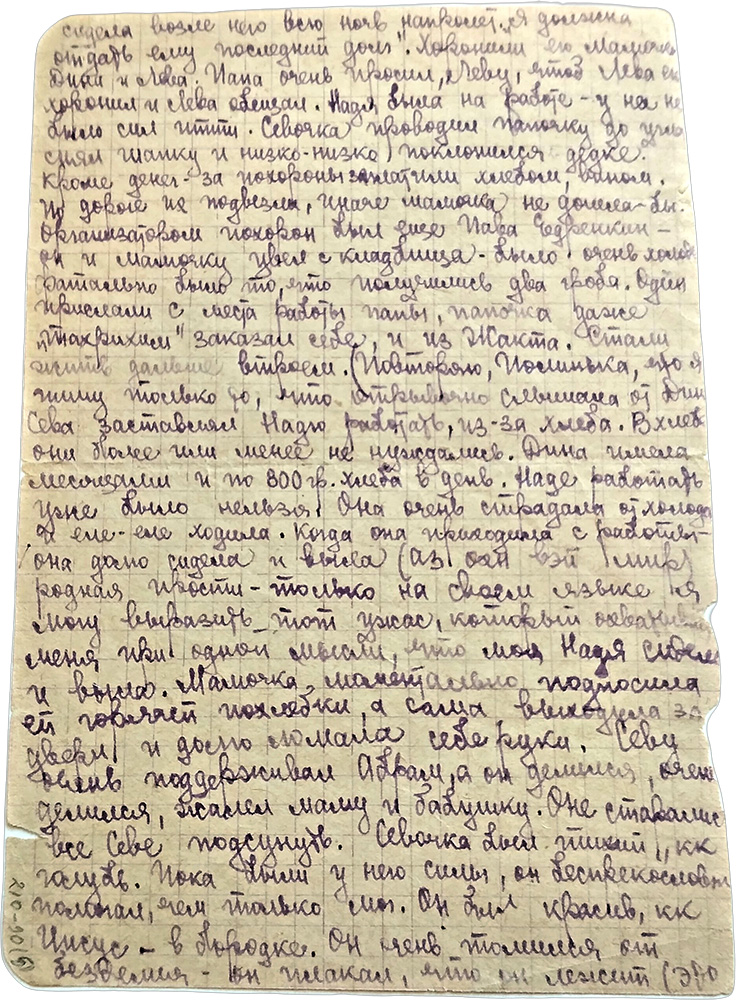 сидела возле него всю ночь напролет. "Я должна
отдать ему последний долг". Хоронили его Мамочка
Дина и Лева. Папа очень просил, Леву, чтоб Лева ег
хоронил и Лева обещал. Надя была на работе - у нея не
было сил итти. Севочка проводил папочку до угла
снял шапку и низко-низко поклонился дедке.
Кроме денег - за похороны заплатили хлебом, вином.
По дороге их подвезли, иначе мамочка не дошла-бы.
Организатором похорон был еще Пава Бедренкин -
он и мамочку увел с кладбища - было очень холод
Фатально было то, что получились два гроба. Один
прислали с места работы папы, папочка даже
"тахрихим" заказал себе, и из Жакта. Стали
жить дальше втроем. (Повторяю, Полинька, что я
пишу только то, что отрывочно слышала от Дин
Сева заставлял Надю работать, из-за хлеба. В хлебе
они более или менее не нуждались. Дина имела
месяцами и по 800 гр. хлеба в день. Наде работать
уже было нельзя. Она очень страдала от холода
и еле-еле ходила. Когда она приходила с работы -
она долго сидела и выла (аз ох вэй мир)
родная прости - только на своем языке я
могу выразить тот ужас, который охватывает
меня при одной мысли, что моя Надя сидела
и выла. Мамочка моментально подносила
ей горячей похлебки, а сама выходила за
двери и долго ломала себе руки. Севу
очень поддерживал Абрам, а он делился, очень
делился, жалел маму и бабушку. Оне старались
все Севе подсунуть. Севочка был тихий, кк
голубь. Пока были у него силы, он беспрекословно
помогал, чем только мог. Он был красив, кк
Иисус - в бородке. Он очень томился от
безделия - он плакал, что он лежит (это